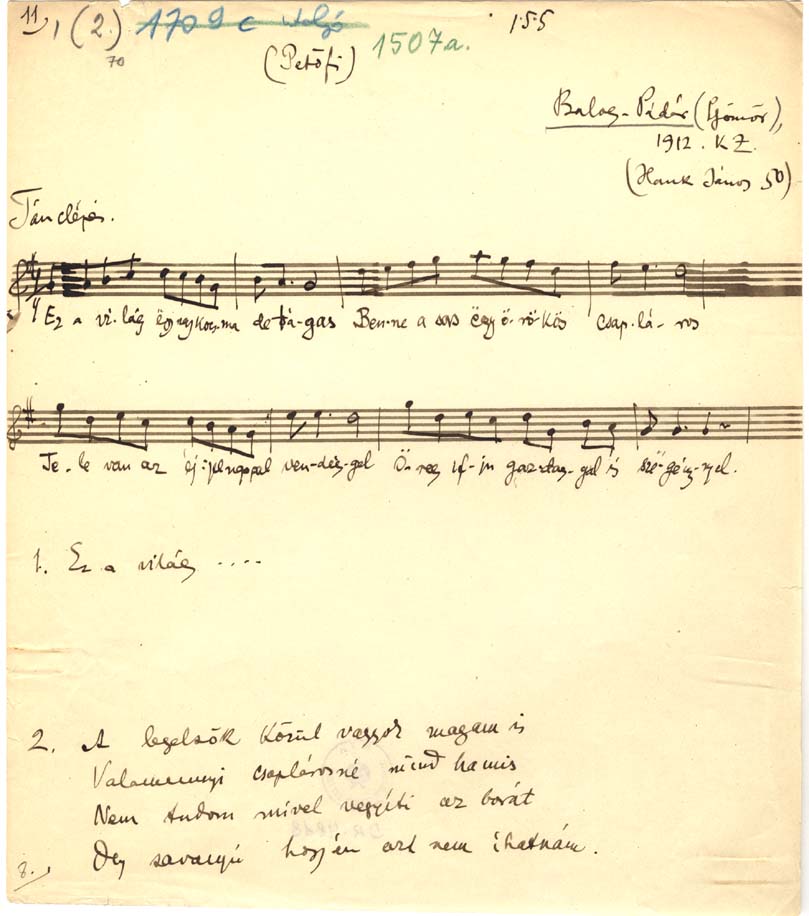 11, 1(2.) 1709 c utolsó 1507a. 155
70
(Petőfi)
Balog-Pádár (Gömör),
1912. KZ.
(Hank János 50)
Tánclépés.
Ez a vi-lág egy nagy kocs-ma de tá-gas Ben-ne a sas ëgy ö-rö-kös csap-lá-ros
Te-le van az éj-jel nappal ven-dég-gel Ö-reg if-ju gaz-dag-gal is sze-gény-nyel.
1. Ez a világ ....
2. A legelsők közül vagyok magam is
Valamennyi csaplárosné mind hamis
Nem tudom mivel vegyíti az borát
Oly savanyú hogy én azt nem ihatnám.
8.